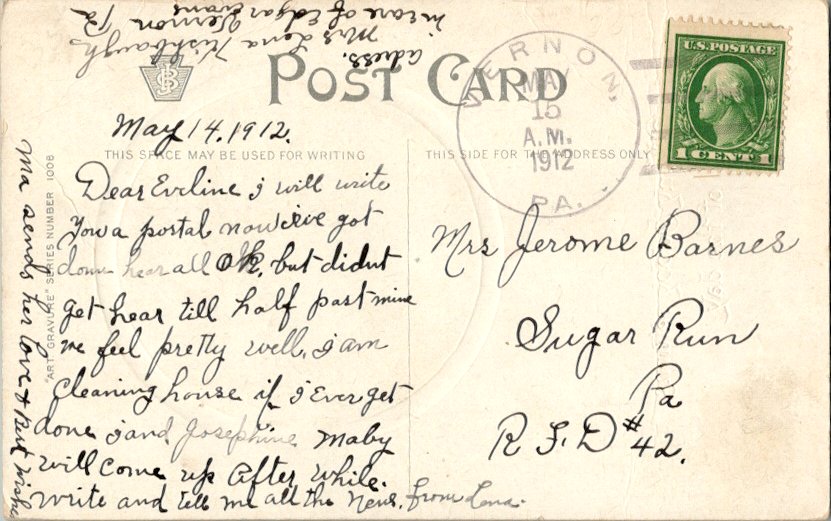 adress.
Mrs Lena
in care of Edgar
Vernon Pa
POST CARD
VERNON,
MAY
15
A.M.
1912
PA.
U.S. POSTAGE
1 CENT 1
May 14. 1912.
THIS SPACE MAY BE USED FOR WRITING
THIS SIDE FOR THE ADDRESS ONLY
Dear Eveline i will write
you a portal now ive got
down hear all OK, but didnt
get hear till half past nine
we feel pretty well, i am
Cleaning house if i Ever get
done i and Josephine Maby
will come up After while.
write and tell me all the News. from Lena.
Ma sends her love & Best wishes
"ART GRAVURE" SERIES NUMBER 1008
Mrs Jerome Barnes
Sugar Run
Pa
R F D #42.